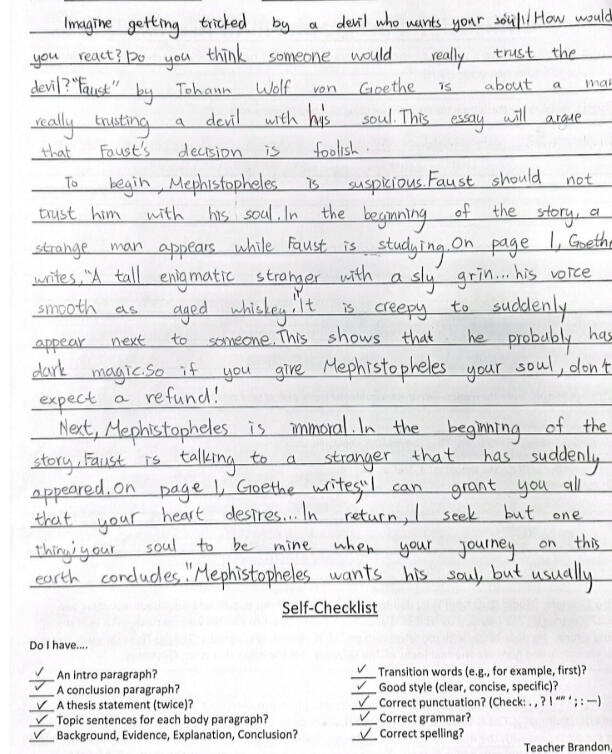 Imagine getting tricked by a devil who wants your soul! How would
you react? Do you think someone would really trust the
devil? "Faust" by Johann Wolf von Goethe is about a man
really trusting a devil with his soul. This essay will argue
that Faust's decision is foolish.
To begin, Mephistopheles is suspicious. Faust should not
trust him with his soul. In the beginning of the story, a
strange man appears while Faust is studying. On page 1, Goethe
writes, "A tall enigmatic stranger with a sly grin... his voice
smooth as aged whiskey." It is creepy to suddenly
appear next to someone. This shows that he probably has
dark magic. So if you give Mephistopheles your soul, don't
expect a refund!
Next, Mephistopheles is immoral. In the beginning of the
story, Faust is talking to a stranger that has suddenly
appeared. On page 1, Goethe writes, "I can grant you all
that your heart desires... In return, I seek but one
thing: your soul to be mine when your journey on this
earth concludes." Mephistopheles wants his soul, but usually
Self-Checklist
Do I have....
✓ An intro paragraph?
✓ A conclusion paragraph?
✓ A thesis statement (twice)?
✓ Topic sentences for each body paragraph?
✓ Background, Evidence, Explanation, Conclusion?
✓ Transition words (e.g., for example, first)?
✓ Good style (clear, concise, specific)?
✓ Correct punctuation? (Check: . , ? ! "" ' ; : —)
✓ Correct grammar?
✓ Correct spelling?
Teacher Brand